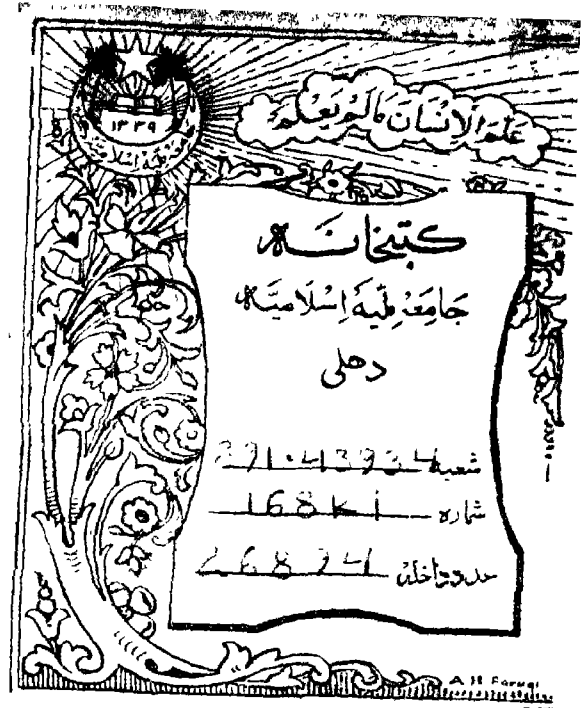 ۱۳۳۹
عَلَّمَ الْاِنْسَانَ مَالَمْ یَعْلَمْ
کتبخانہ
جَامِعَہ مِلّیَہ اِسْلَامیَہ
دھلی
شعبہ 891.43934
شمارہ 168K1
عدد داخلہ 26894
A H Faruqi